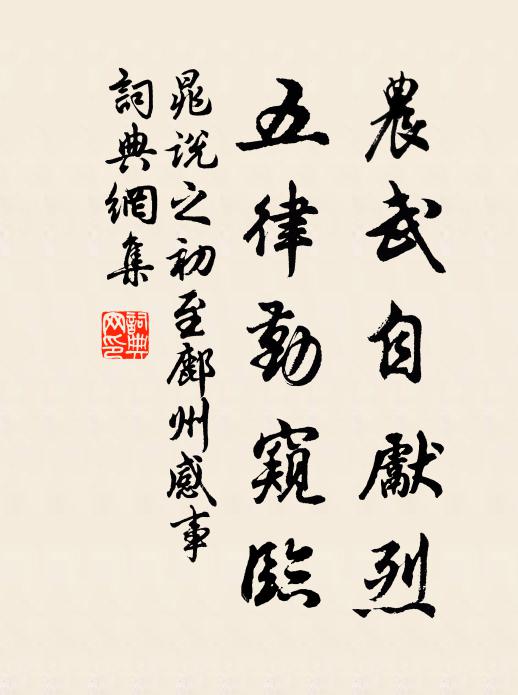 農武自獻烈
五律勤窺臨
晁說之初至鄜州感事
詞典網集
詞典
网印